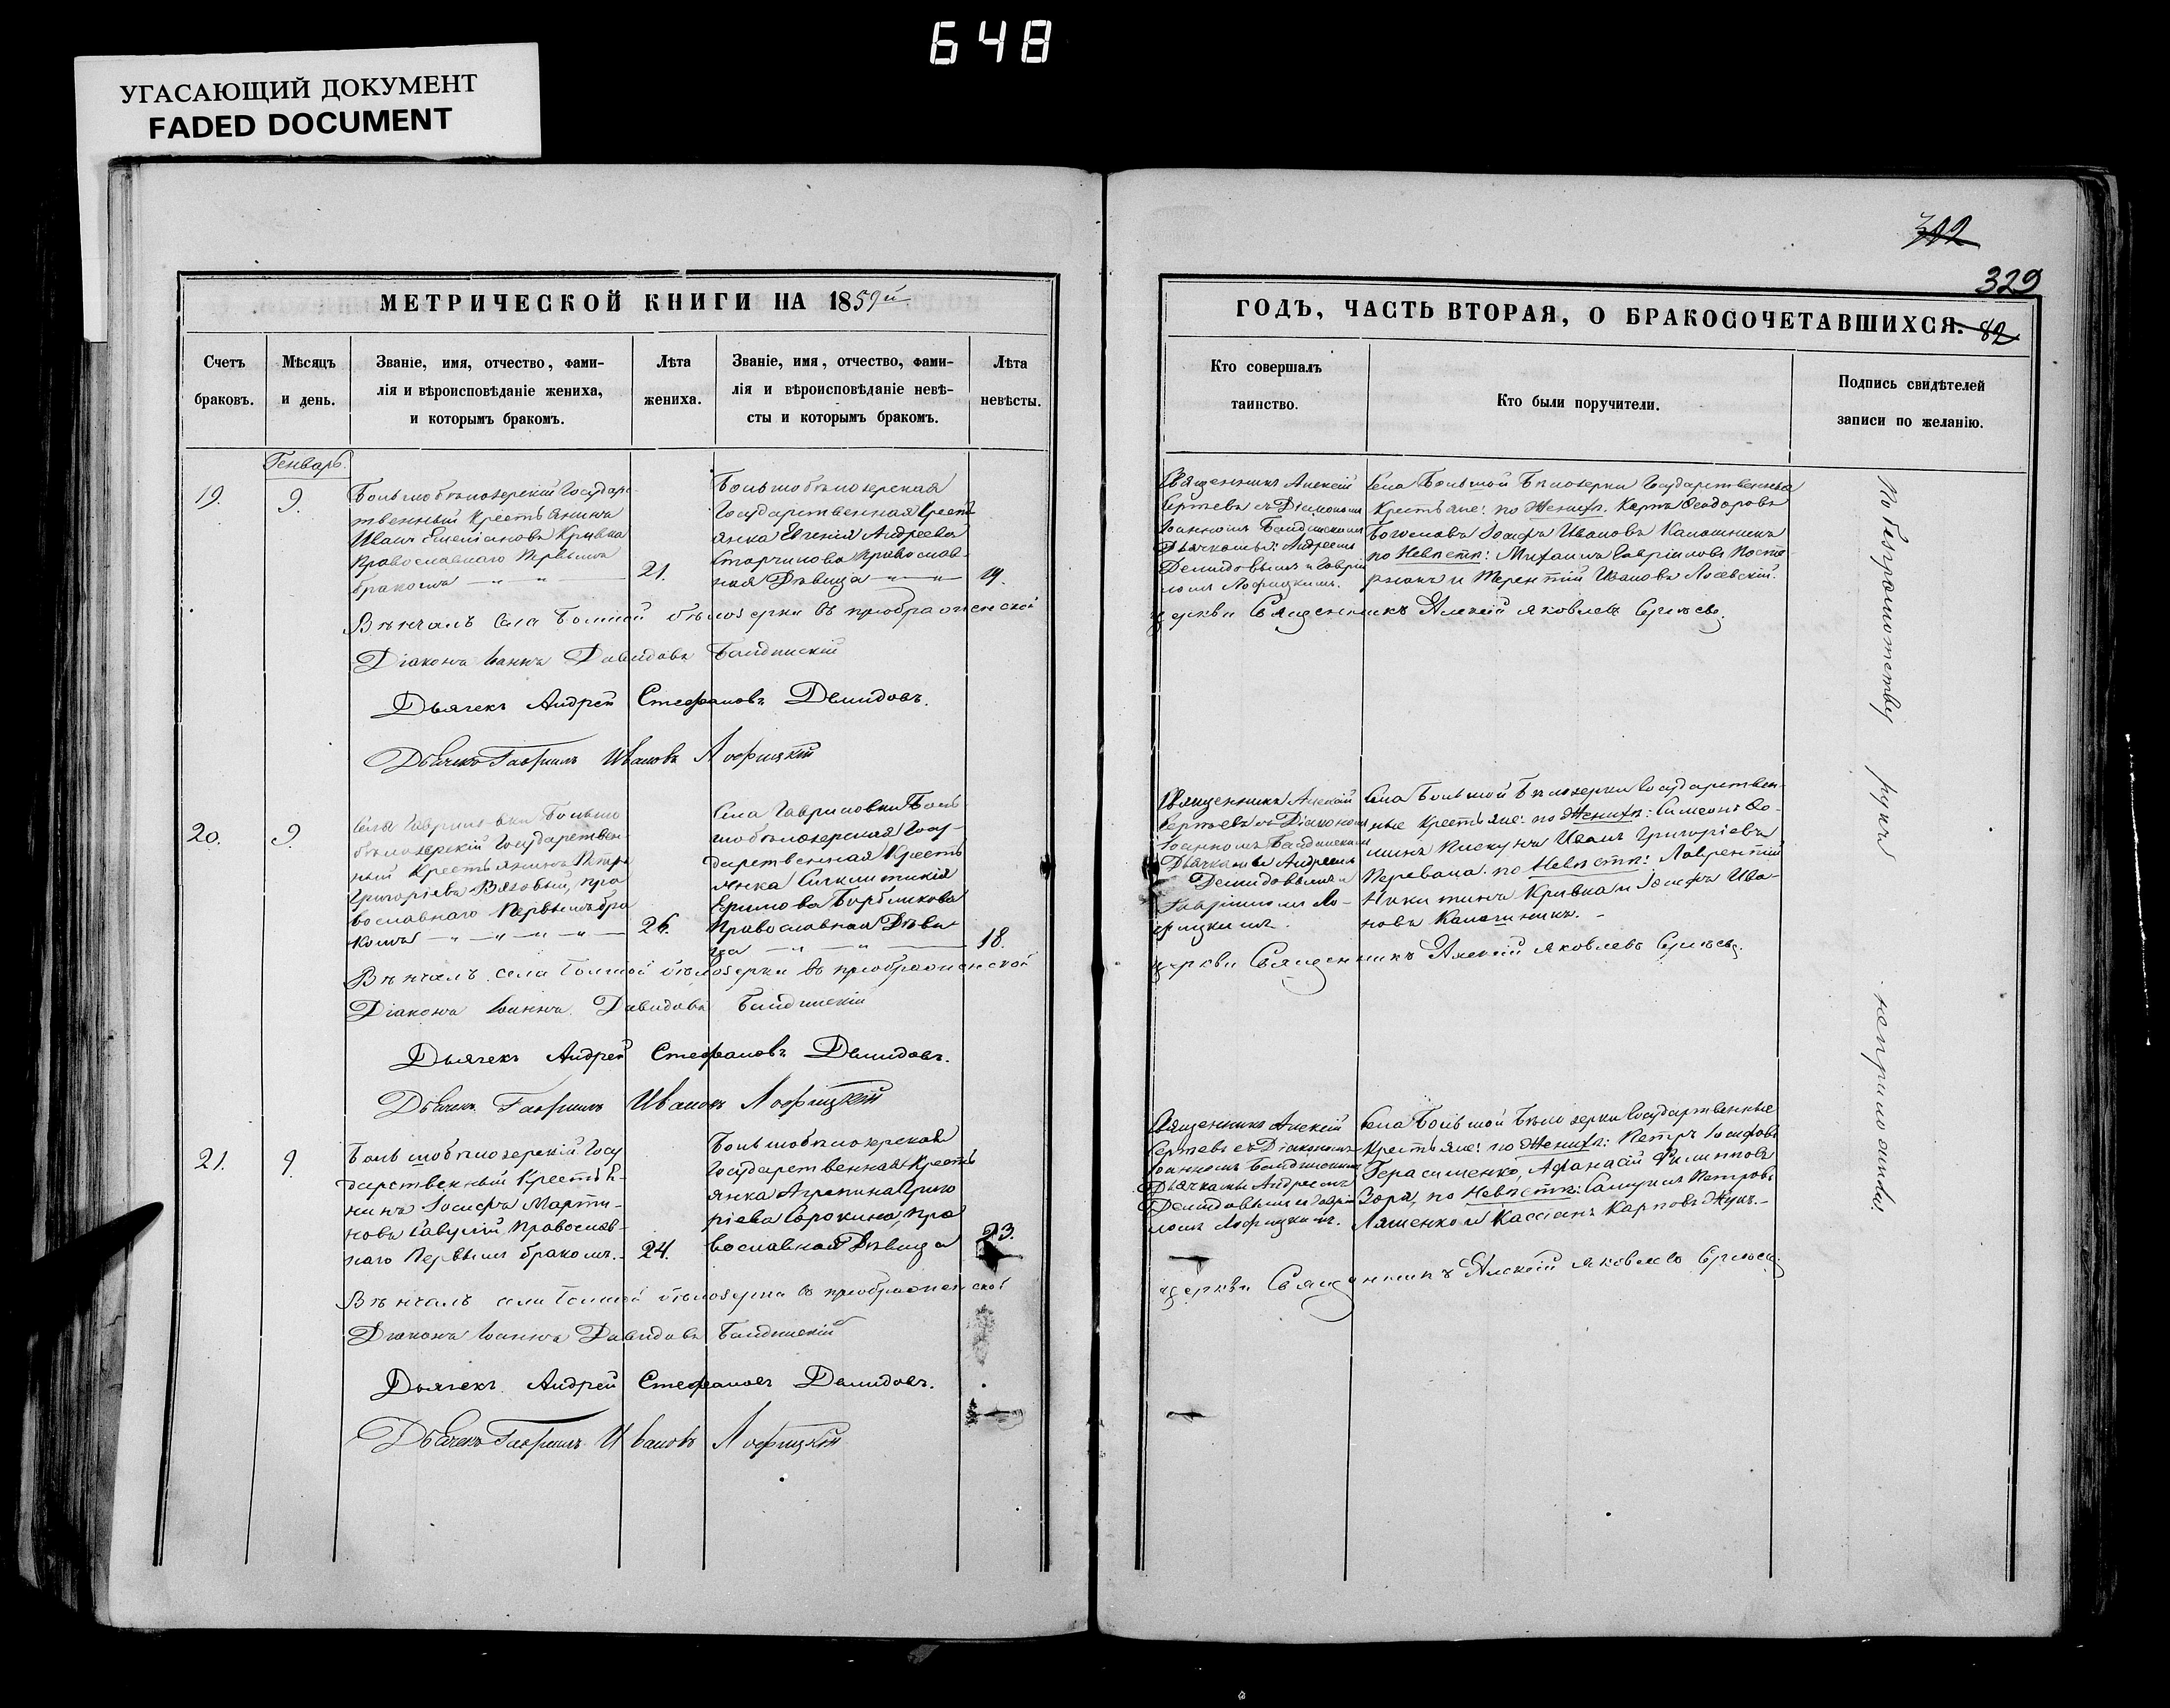 648
УГАСАЮЩИЙ ДОКУМЕНТ
FADED DOCUMENT
312
329
МЕТРИЧЕСКОЙ КНИГИ НА 1859й
Счетъ браковъ.
Мѣсяцъ и день.
Званіе, имя, отчество, фами-
лія и вѣроисповѣданіе жениха,
и которымъ бракомъ.
Лѣта жениха.
Званіе, имя, отчество, фами-
лія и вѣроисповѣданіе невѣ-
сты и которымъ бракомъ.
Лѣта невѣсты.
ГОДЪ, ЧАСТЬ ВТОРАЯ, О БРАКОСОЧЕТАВШИХСЯ. 82
Кто совершалъ
таинство.
Кто были поручители.
Подпись свидѣтелей
записи по желанію.
Генварь.
19.
9.
Большобѣлозерскій Государс-
твенный Крестьянинъ
Иванъ Емеліановъ Кривка
Православнаго Первымъ
бракомъ
21.
Большобѣлозерская
Государственная Кресть
янка Евгенія Андреева
Православ-
ная Дѣвица
19.
Священникъ Алексій
Сергѣевъ съ Діакономъ
Іоанномъ
Дьячками: Андреемъ
Демидовымъ и Гаврі
ломъ Лофицкимъ.
Села Большой Бѣлозерки Государственные
Крестьяне: по Женихѣ: Карпъ Феодоровъ
Іосифъ Ивановъ Калашникъ
по Невѣстѣ: Михаилъ Гавріиловъ
и Терентій Ивановъ
Вѣнчалъ Села Большой бѣлозерки въ преображенской
церкви Священникъ Алексій Яковлевъ Сергѣевъ.
Діаконъ Іоаннъ Давидовъ
Дьячекъ Андрей Стефановъ Демидовъ.
Дьячекъ Гавриилъ Ивановъ Лофицкій
20.
9.
Села Гавриловки Большо
бѣлозерскій Государствен
ный Крестьянинъ Петръ
Григоріевъ Вязовый, пра
вославнаго Первымъ бра
комъ
26.
Села Гавриловки Боль
шобѣлозерская Госу-
дарственная Кресть
янка Синклитикія
Ефимова
Православная Дѣви
ца
18.
Священникъ Алексій
Сергѣевъ съ Діакономъ
Іоанномъ
Дьячками Андреемъ
Демидовымъ и
Гавріиломъ Ло-
фицкимъ.
Села Большой Бѣлозерки Государствен-
ные Крестьяне: по Женихѣ: Симеонъ Фо-
минъ Пискунъ Иванъ Григоріевъ
Перевала. по Невѣстѣ: Лаврентій
Никитинъ Кривка и Іосифъ Ива-
новъ Калашникъ.
Вѣнчалъ села Большой бѣлозерки въ преображенской
церкви Священникъ Алексій Яковлевъ Сергѣевъ.
Діаконъ Іоаннъ Давидовъ
Дьячекъ Андрей Стефановъ Демидовъ.
Дьячекъ Гавриилъ Ивановъ Лофицкій
21.
9
Большобѣлозерскій Госу
дарственный Крестья-
нинъ Іосифъ Марти-
новъ Православ-
наго Первымъ бракомъ.
24.
Большобѣлозерская
Государственная Кресть
янка Агрипина Григо
ріева Сорокина, пра
вославная Дѣвица
23.
Священникъ Алексій
Сергѣевъ съ Діакономъ
Іоанномъ
Дьячками Андреемъ
Демидовымъ и Гаврі
ломъ Лофицкимъ.
Села Большой Бѣлозерки Государственные
Крестьяне: по Женихѣ: Петръ Іосифовъ
Герасименко, Афанасій Филиповъ
Зоря, по Невѣстѣ: Самуилъ Петровъ
Ляшенко и Кассіанъ Карповъ Жукъ.
Вѣнчалъ села Большой бѣлозерки въ преображенской
церкви Священникъ Алексій Яковлевъ Сергѣевъ
Діаконъ Іоаннъ Давидовъ
Дьячекъ Андрей Стефановъ Демидовъ.
Дьячекъ Гавриилъ Ивановъ Лофицкій
По безграмотству рукъ неприложили.